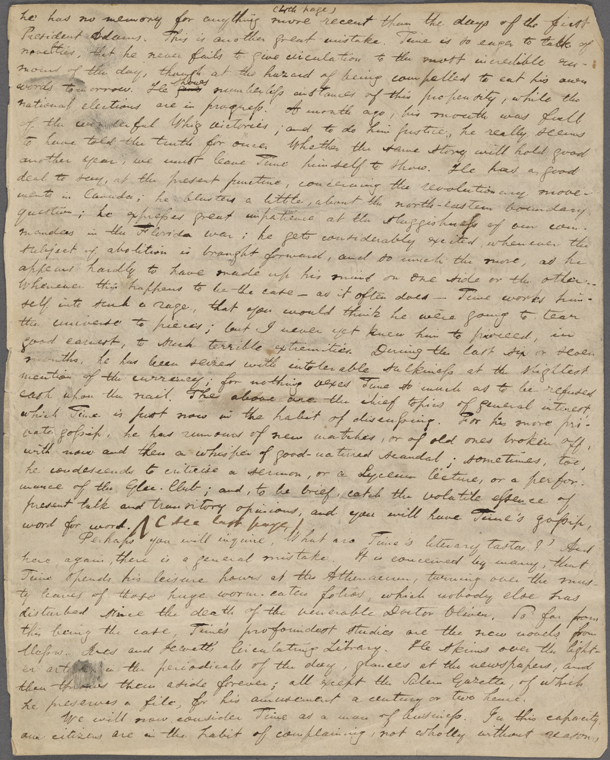 (4th page)
he has no memory for anything more recent than the days of the first
President Adams. This is another great mistake. Time is so eager to talk of
novelties, that he never fails to give circulation to the most incredible ru-
mors of the day, though at the hazard of being compelled to eat his own
words tomorrow. He shows numberless instances of this propensity, while the
national elections are in progress. A month ago, his mouth was full
of the wonderful Whig victories; and to do him justice, he really seems
to have told the truth for once. Whether the same story will hold good
another year, we must leave Time himself to show. He has a good
deal to say, at the present juncture, concerning the revolutionary move-
ments in Canada; he blusters a little, about the north-eastern boundary
question; he expresses great impatience at the sluggishness of our com-
manders in the Florida war; he gets considerably excited, whenever the
subject of abolition is brought forward, and so much the more, as he
appears hardly to have made up his mind on one side or the other.
Whenever this happens to be the case – as it often does – Time works him-
self into such a rage, that you would think he were going to tear
the universe to pieces; but I never yet knew him to proceed, in
good earnest, to such terrible extremities. During the last six or seven
months, he has been seized with intolerable sulkiness at the slightest
mention of the currency; for nothing vexes Time so much as to be refused
cash upon the nail. The above are the chief topics of general interest
which Time is just now in the habit of discussing. For his more pri-
vate gossip, he has rumours of new matches, or of old ones broken off,
with now and then a whisper of good-natured scandal; sometimes, too,
he condescends to criticise a sermon, or a Lyceum lecture, or a perfor-
mance of the Glee-Club; and, to be brief, catch the volatile essence of
present talk and transitory opinions, and you will have Time's gossip,
word for word. (See last page)
Perhaps you will inquire, What are Time's literary tastes? And
here again there is a general mistake. It is conceived by many, that
Time spends his leisure hours at the Athenaeum, turning over the mus-
ty leaves of those huge worm-eaten folios, which nobody else has
disturbed since the death of the venerable Doctor Oliver. So far from
this being the case, Time's profoundest studies are the new novels from
Messrs. Ives and Jewett's Circulating Library. He skims over the light-
er articles in the periodicals of the day, glances at the newspapers, and
then throws them aside forever; all except the Salem Gazette, of which
he preserves a file, for his amusement a century or two hence.
We will now consider Time as a man of business. In this capacity,
our citizens are in the habit of complaining, not wholly without reason,